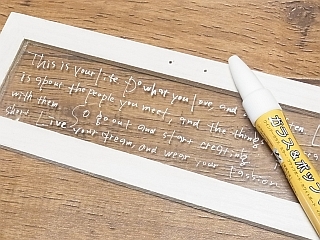 This is your life Do what you love, and
is about the people you meet, and the thing
with them So go out and start creating.
short. Live your dream, and wear your fashion
ガラス&ポップ